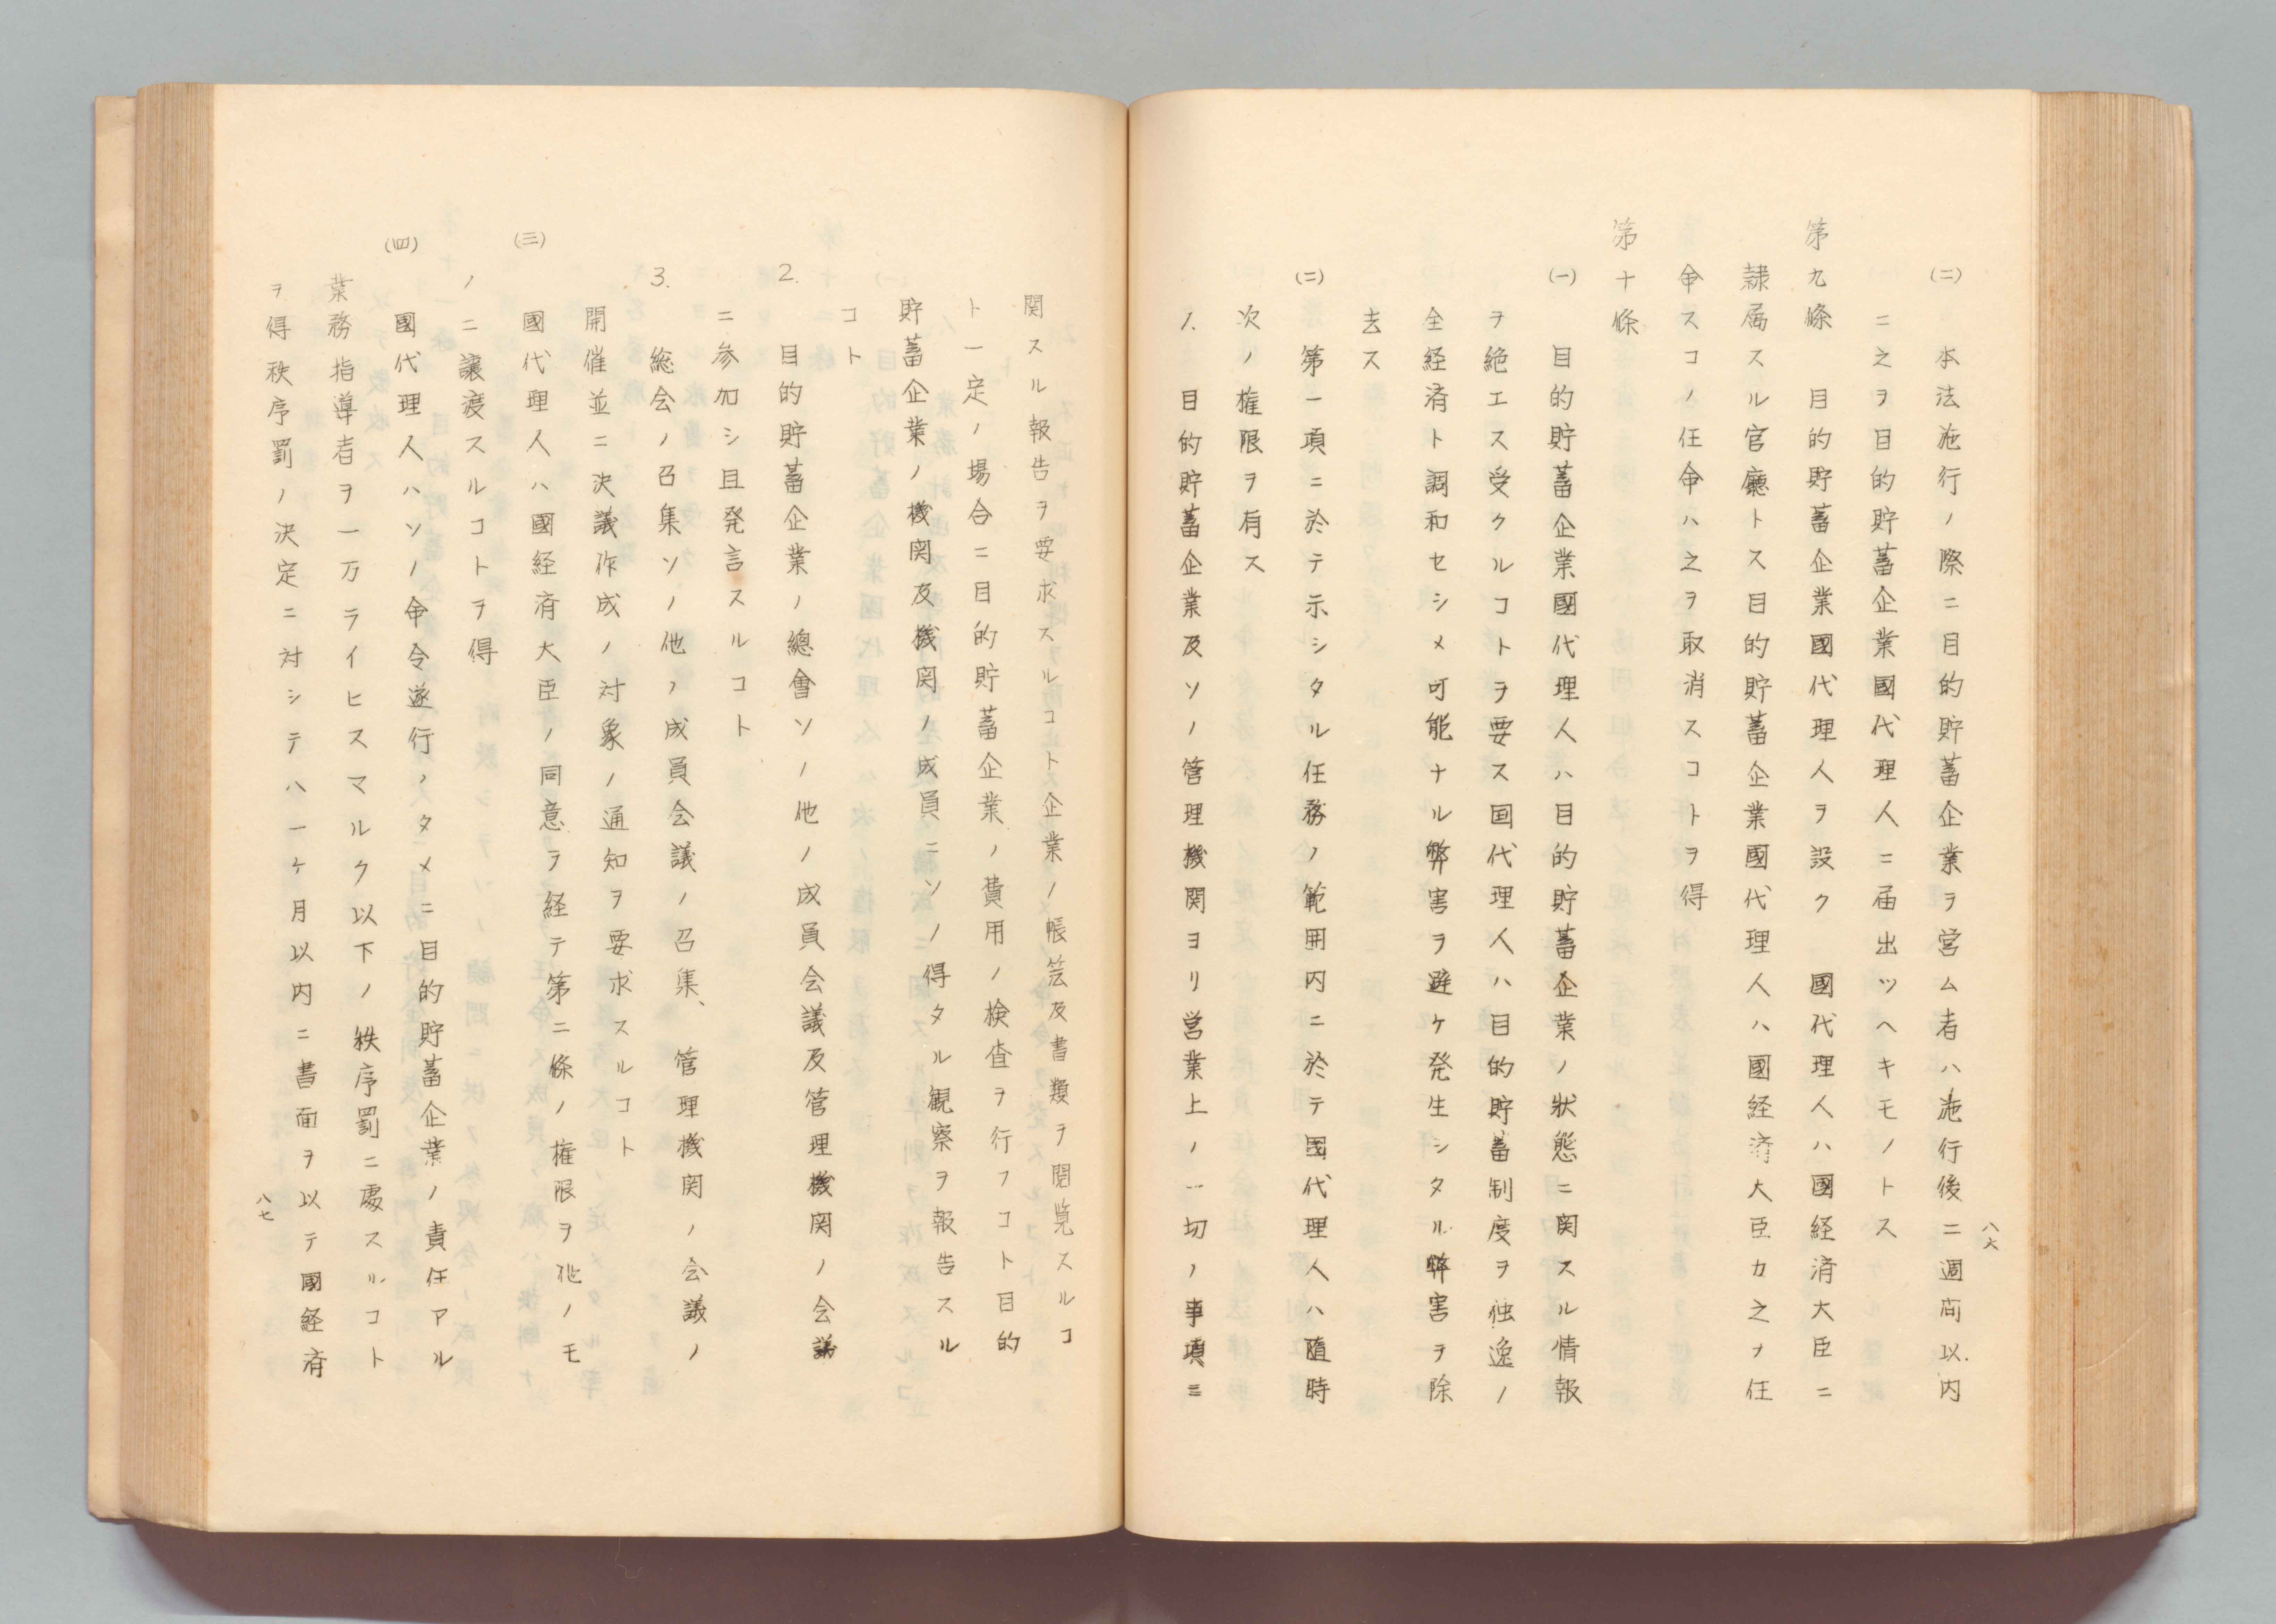 八六
(二)　本法施行ノ際ニ目的貯蓄企業ヲ営ム者ハ施行後二週間以内
ニ之ヲ目的貯蓄企業國代理人ニ届出ツヘキモノトス
第九條　目的貯蓄企業國代理人ヲ設ク　國代理人ハ國経済大臣ニ
隷属スル官廳トス目的貯蓄企業國代理人ハ國経済大臣カ之ヲ任
命スコノ任命ハ之ヲ取消スコトヲ得
第十條
(一)　目的貯蓄企業國代理人ハ目的貯蓄企業ノ狀態ニ関スル情報
ヲ絶エス受クルコトヲ要ス国代理人ハ目的貯蓄制度ヲ独逸ノ
全経済ト調和セシメ可能ナル弊害ヲ避ケ発生シタル弊害ヲ除
去ス
(二)　第一項ニ於テ示シタル任務ノ範囲内ニ於テ國代理人ハ随時
次ノ権限ヲ有ス
1.　目的貯蓄企業及ソノ管理機関ヨリ営業上ノ一切ノ事項ニ
関スル報告ヲ要求スルコト企業ノ帳簿及書類ヲ閲覧スルコ
ト一定ノ場合ニ目的貯蓄企業ノ費用ノ検査ヲ行フコト目的
貯蓄企業ノ機関及機関ノ成員ニソノ得タル観察ヲ報告スル
コト
2.　目的貯蓄企業ノ總會ソノ他ノ成員会議及管理機関ノ会議
ニ参加シ且発言スルコト
3.　総会ノ召集ソノ他ノ成員会議ノ召集、管理機関ノ会議ノ
開催並ニ決議作成ノ対象ノ通知ヲ要求スルコト
(三)　國代理人ハ國経済大臣ノ同意ヲ経テ第二條ノ権限ヲ他ノモ
ノニ讓渡スルコトヲ得
(四)　國代理人ハソノ命令遂行ノタメニ目的貯蓄企業ノ責任アル
業務指導者ヲ一万ライヒスマルク以下ノ秩序罰ニ處スルコト
ヲ得秩序罰ノ決定ニ対シテハ一ヶ月以内ニ書面ヲ以テ國経済
八七